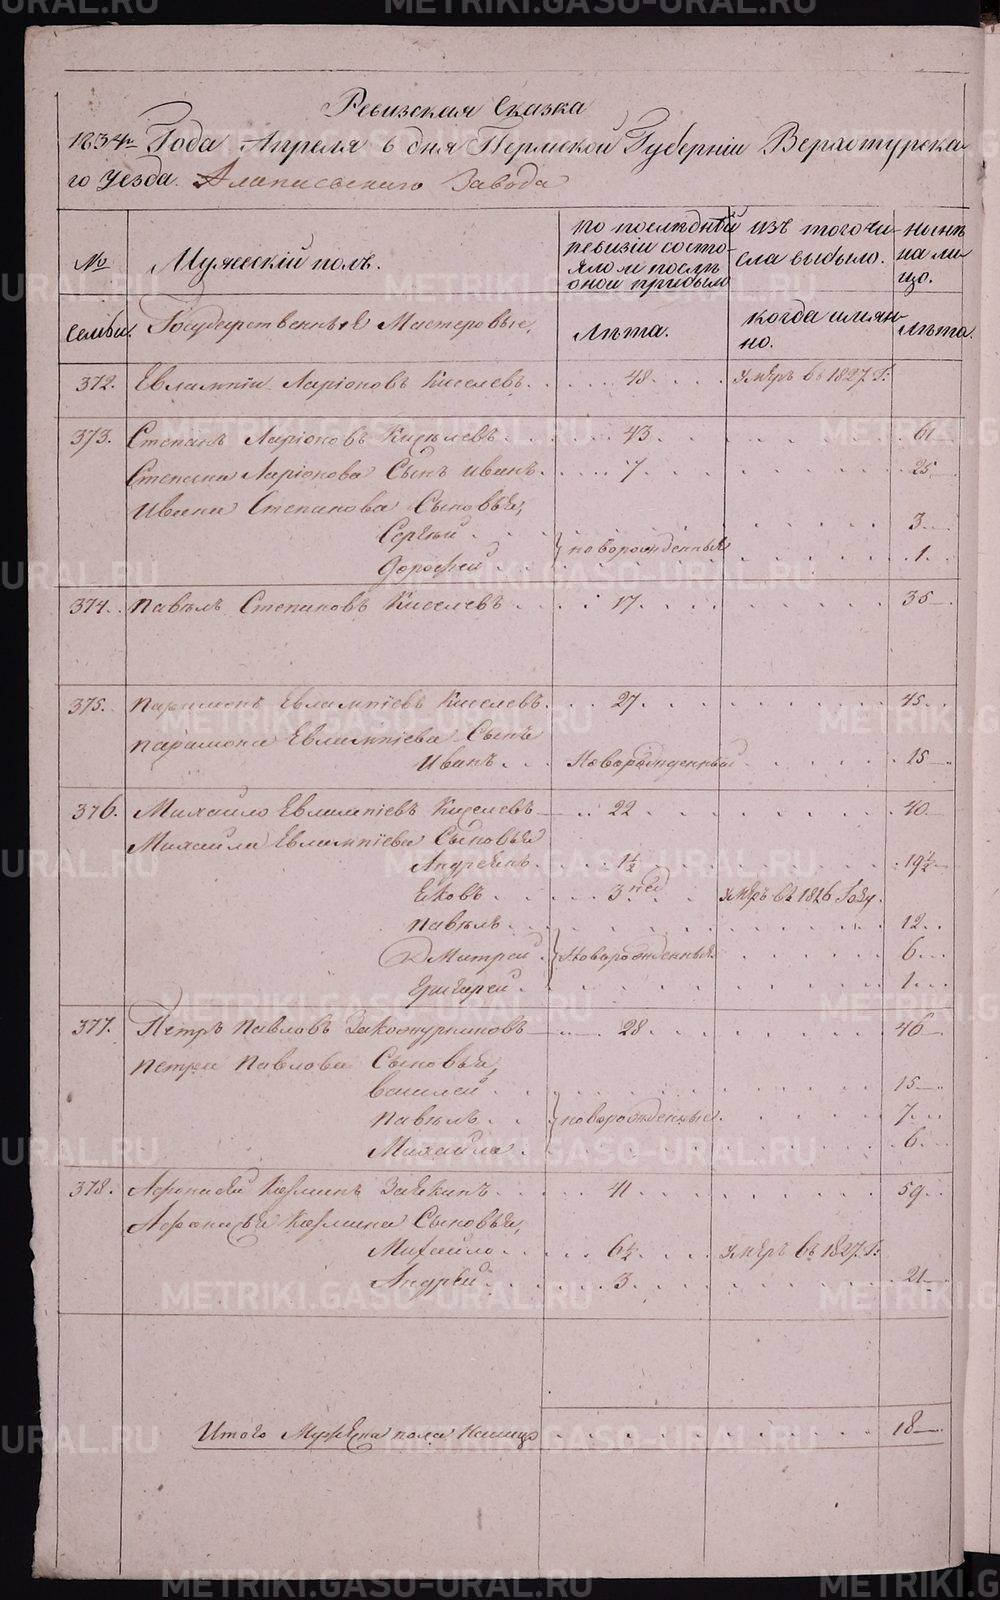 Ревизская Сказка
1834го Года Апреля 6 дня Пермской Губерніи Верхотурска-
го Уезда. Алапаевскаго Завода
№
Мужескій полъ.
по последней
ревизіи состо-
яло и после
оной прибыло
изъ того чи-
сла выбыло.
ныне
на ли-
цо.
семьи.
Государственные Мастеровые,
Лѣта.
когда имян-
но.
Лѣта.
372. Евлампіи Ларіоновъ Киселевъ. 48. умеръ въ 1827. Г.
373. Степанъ Ларіоновъ Киселевъ 43 61
Степана Ларіонова Сынъ Иванъ. 7 25
Ивана Степанова Сыновья,
Сергѣй 3
Дорофей новорожденныя 1
374. Павелъ Степановъ Киселевъ 17 35
375. Парамонъ Евлампіевъ Киселевъ. 27 45
Парамона Евлампіева Сынъ
Иванъ Новорожденный 15
376. Михайло Евлампіевъ Киселевъ 22 40
Михайла Евлампіева Сыновья
Андреянъ 1½ 19½
Яковъ 3 нед умеръ въ 1826 Году.
Павелъ 12
Дмитрей Новорожденныя 6
Григорей 1
377. Петръ Павловъ Закожурниковъ 28 46
Петра Павлова Сыновья,
Василей 15
Павелъ новорожденные 7
Михайла 6
378. Афонасей Козминъ Заякинъ 41 59
Афонасья Козмина Сыновья,
Михайло 6½ умеръ въ 1827. Г.
Андрей 3 21
Итого Мужеска пола на лицо 18
METRIKI.GASO-URAL.RU